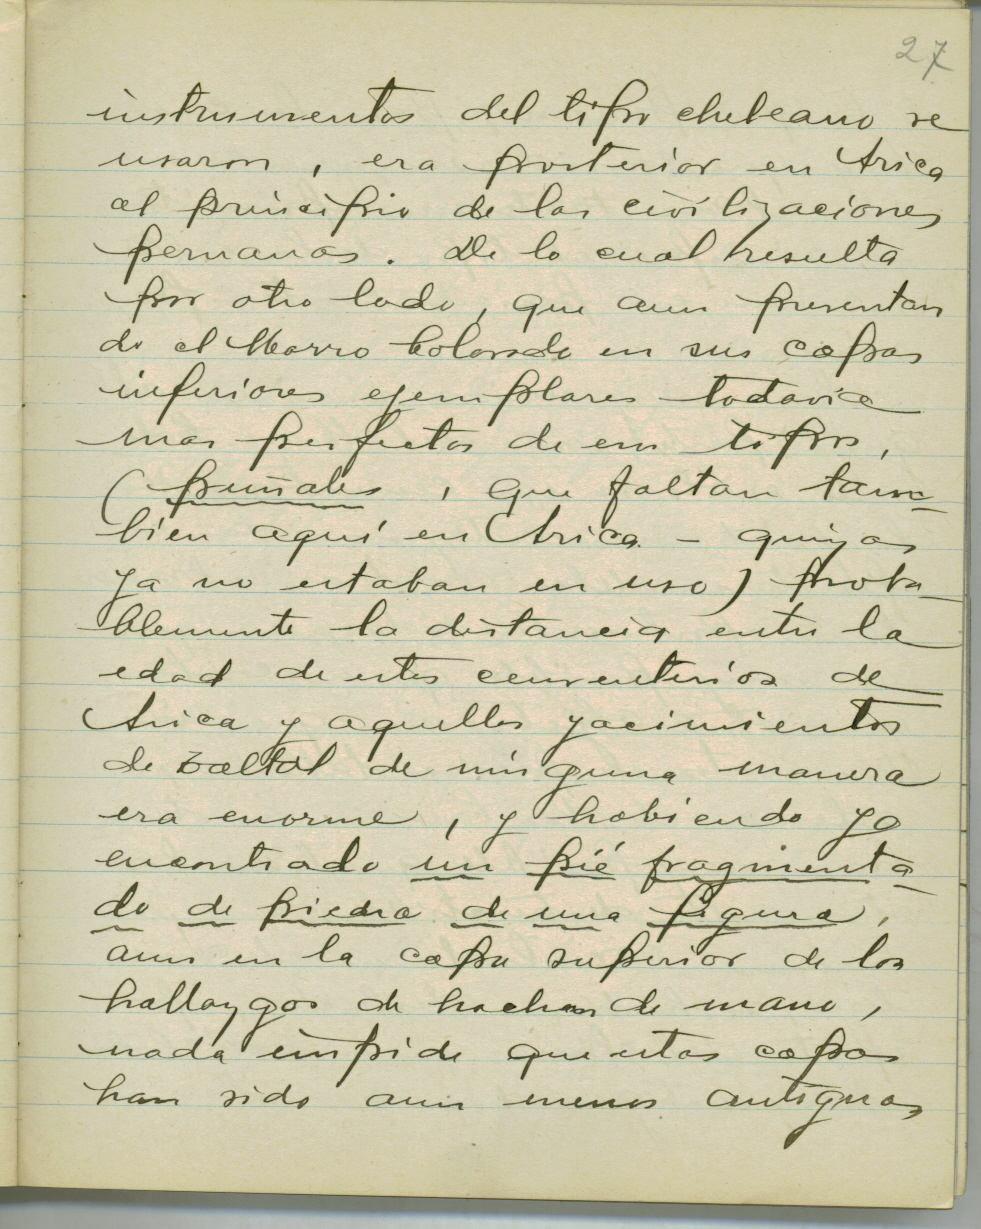 27
instrumentos del tipo cheleano se
usaron, era posterior en Arica
al principio de las civilizaciones
peruanas. De lo cual resulta
por otro lado, que aun presentan
do el Morro Colorado en sus capas
inferiores ejemplares todavia
mas perfectos de esos tipos,
(puñales, que faltan tam-
bien aquí en Arica - quizas
ya no estaban en uso) proba-
blemente la distancia entre la
edad de estos cementerios de
Arica y aquellos yacimientos
de Taltal de ninguna manera
era enorme, y habiendo ya
encontrado un pié fragmenta-
do de piedra de una figura,
aun en la capa superior de los
hallazgos de hachas de mano,
nada impide que estas capas
han sido aun menos antiguas